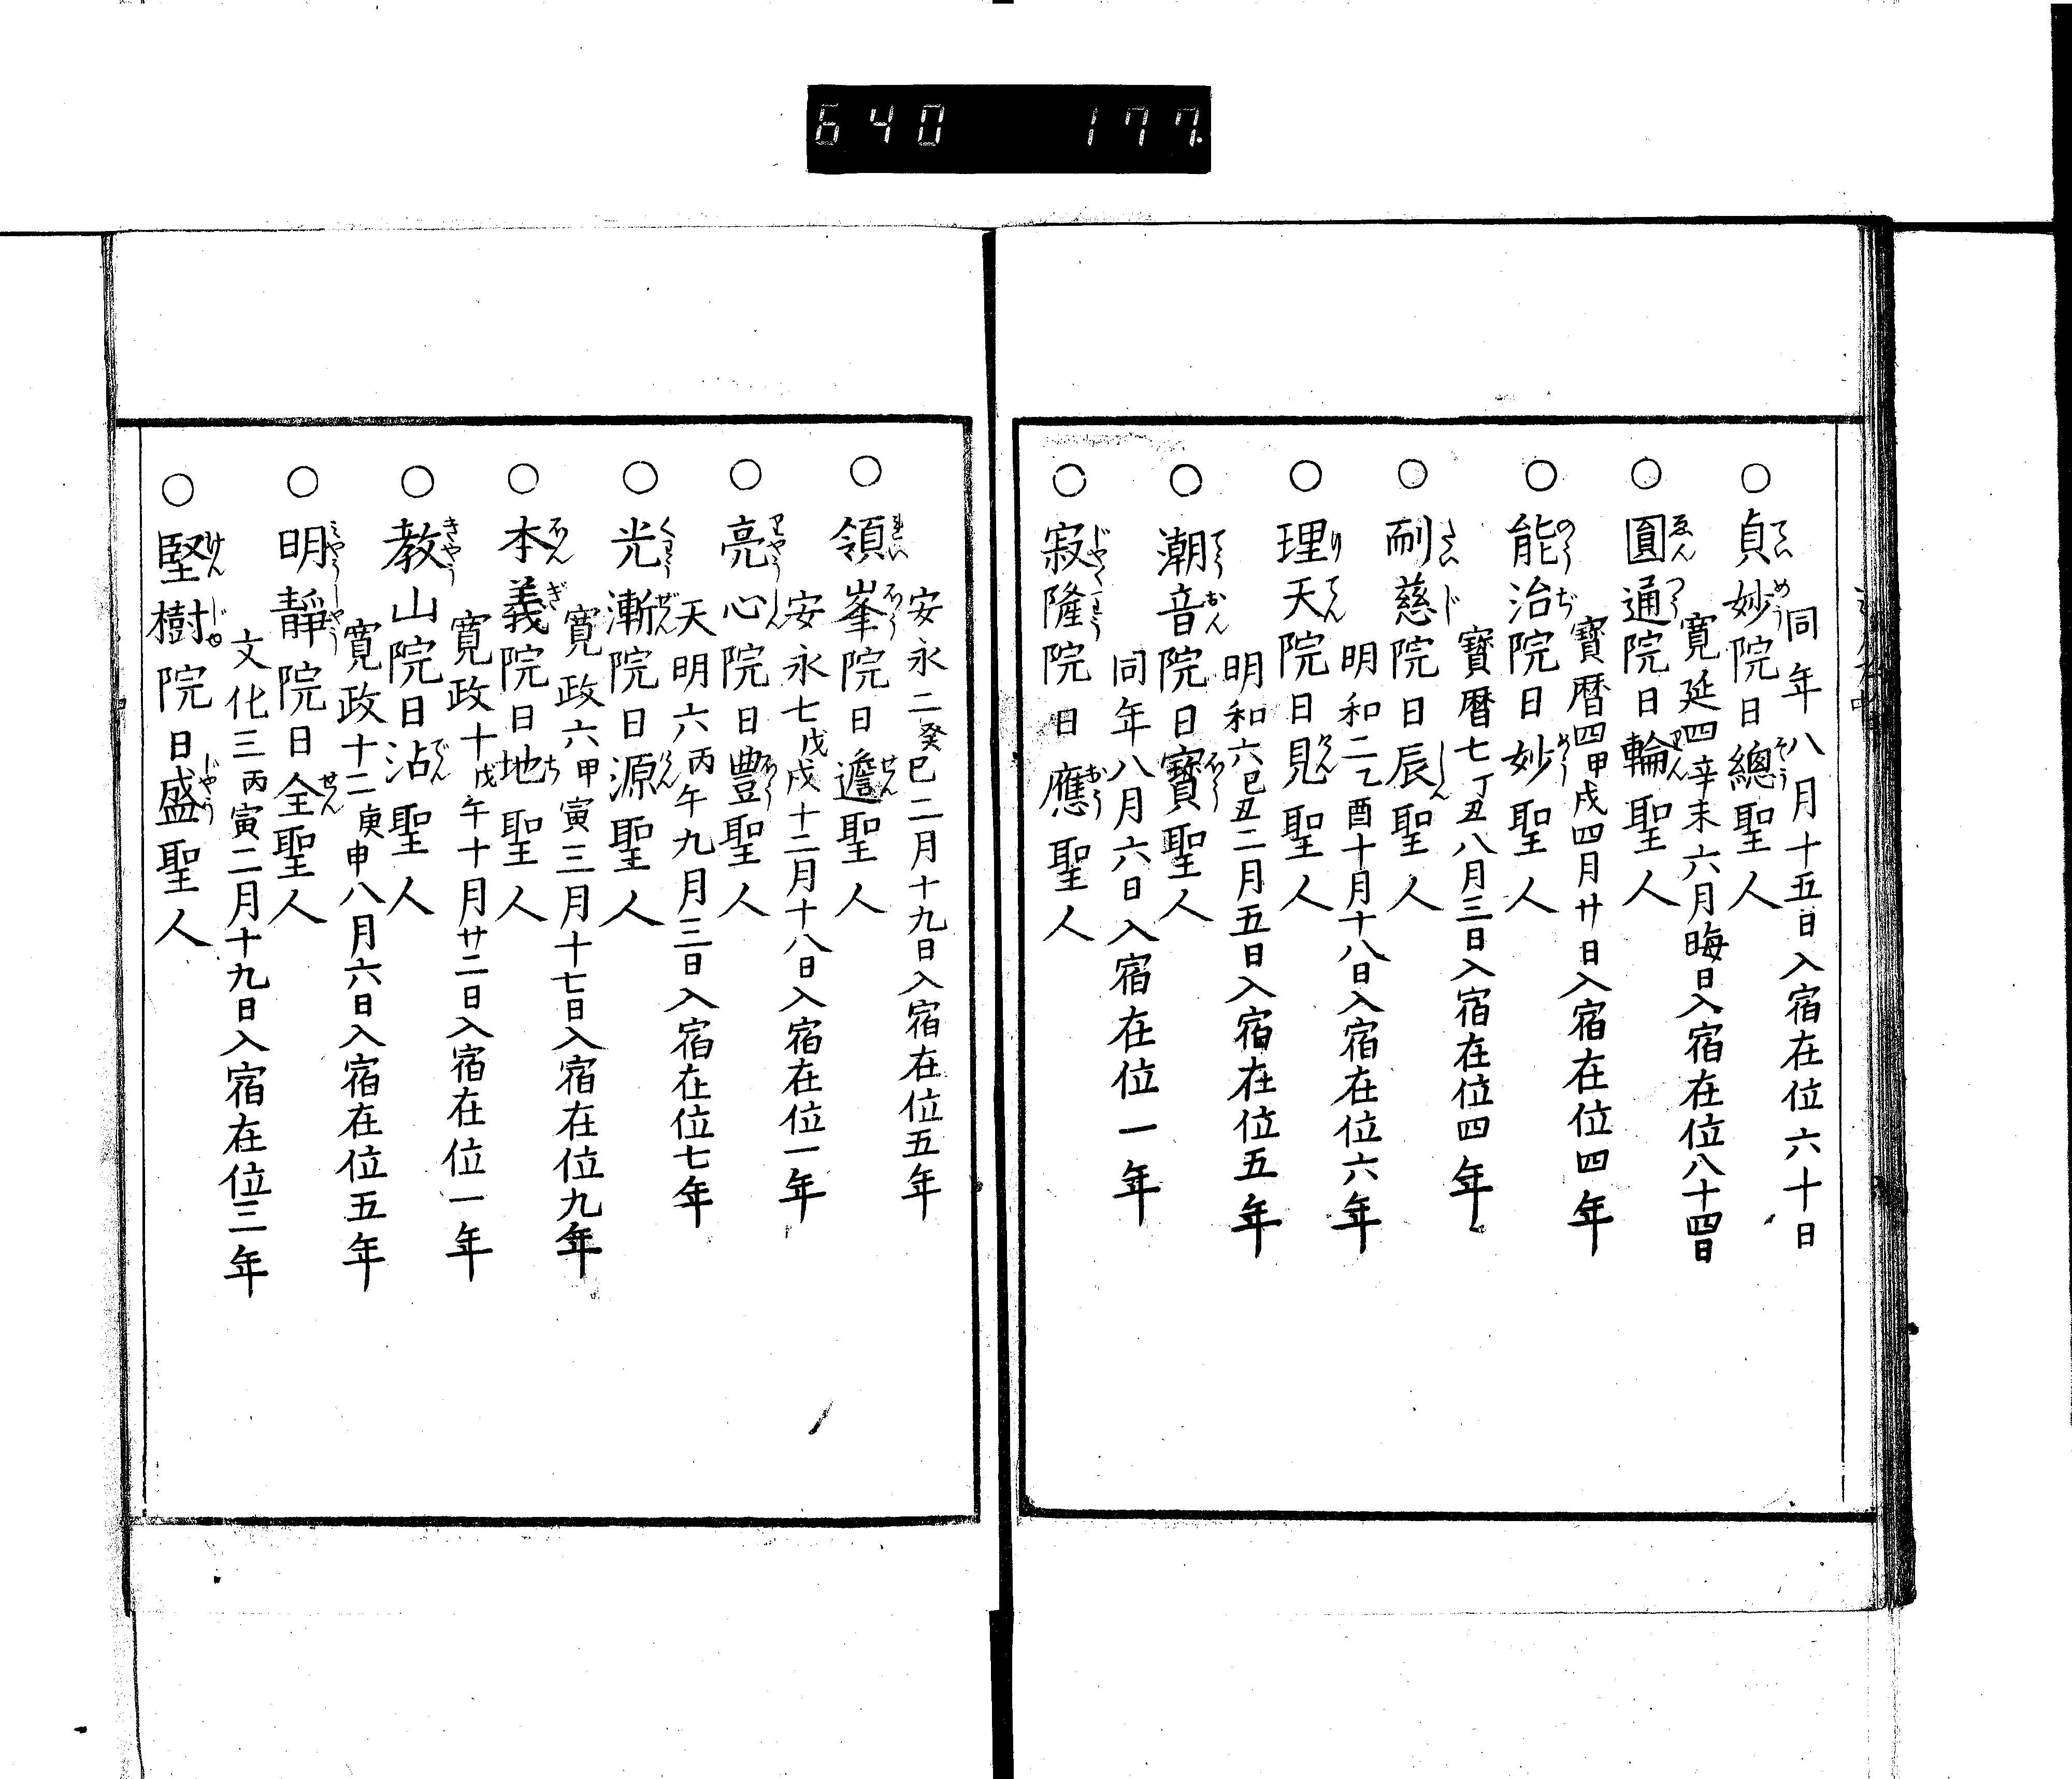 640 177
○貞妙院日總聖人
同年八月十五日入宿在位六十日
○圓通院日輪聖人
寛延四辛未六月晦日入宿在位八十四日
○能治院日妙聖人
寳暦四甲戌四月廿日入宿在位四年
○耐慈院日辰聖人
寳暦七丁丑八月三日入宿在位四年
○理天院日見聖人
明和二乙酉十月十八日入宿在位六年
○潮音院日寳聖人
明和六己丑二月五日入宿在位五年
○寂隆院日應聖人
同年八月六日入宿在位一年
○領峯院日遵聖人
安永二癸巳二月十九日入宿在位五年
○亮心院日豊聖人
安永七戊戌十二月十八日入宿在位一年
○光漸院日源聖人
天明六丙午九月三日入宿在位七年
○本義院日地聖人
寛政六甲寅三月十七日入宿在位九年
○教山院日沾聖人
寛政十戊午十月廿二日入宿在位一年
○明靜院日全聖人
寛政十二庚申八月六日入宿在位五年
○堅樹院日盛聖人
文化三丙寅二月十九日入宿在位三年